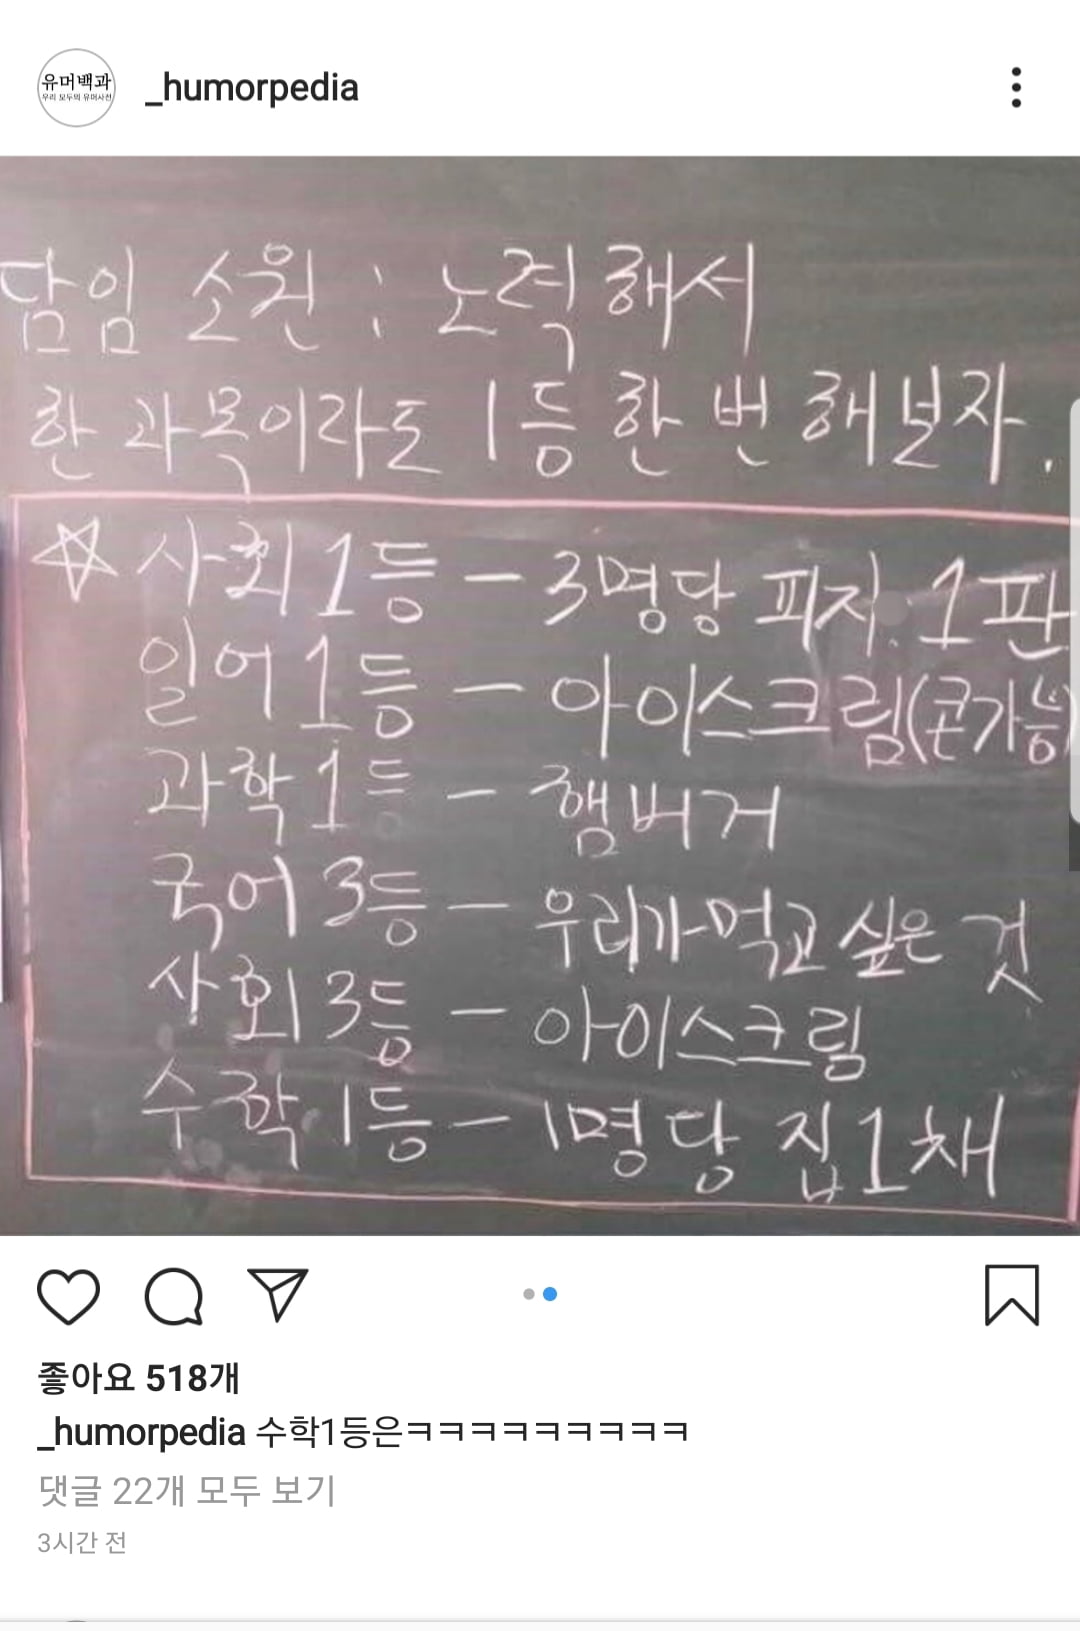 유머백과
우리 모두의 유머사전
_humorpedia
담임 소원 : 노력해서
한 과목이라도 1등 한 번 해보자.
☆ 사회 1등 - 3명당 피자 1판
일어 1등 - 아이스크림(콘가능)
과학 1등 - 햄버거
국어 3등 - 우리가 먹고 싶은 것
사회 3등 - 아이스크림
수학 1등 - 1명당 집 1채
좋아요 518개
_humorpedia 수학1등은ㅋㅋㅋㅋㅋㅋㅋㅋㅋ
댓글 22개 모두 보기
3시간 전